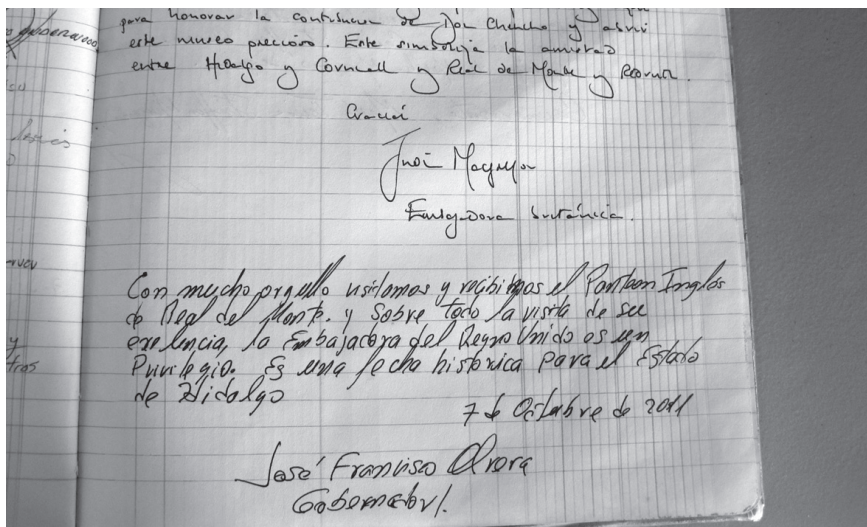 para honorar la continuencia de Don Chencho y abrir
este museo precioso. Este simboliza la amistad
entre Hidalgo y Cornwall y Real de Monte y
Gracias
Judi
Embajadora británica.
Con mucho orgullo visitamos y recibimos el Panteon Inglés
de Real del Monte. y sobre todo la visita de su
exelencia, la Embajadora del Reyno Unido es un
Privilegio. Es una fecha historica para el Estado
de Hidalgo
7 de Octubre de 2011
José Francisco Olvera
Gobernador.